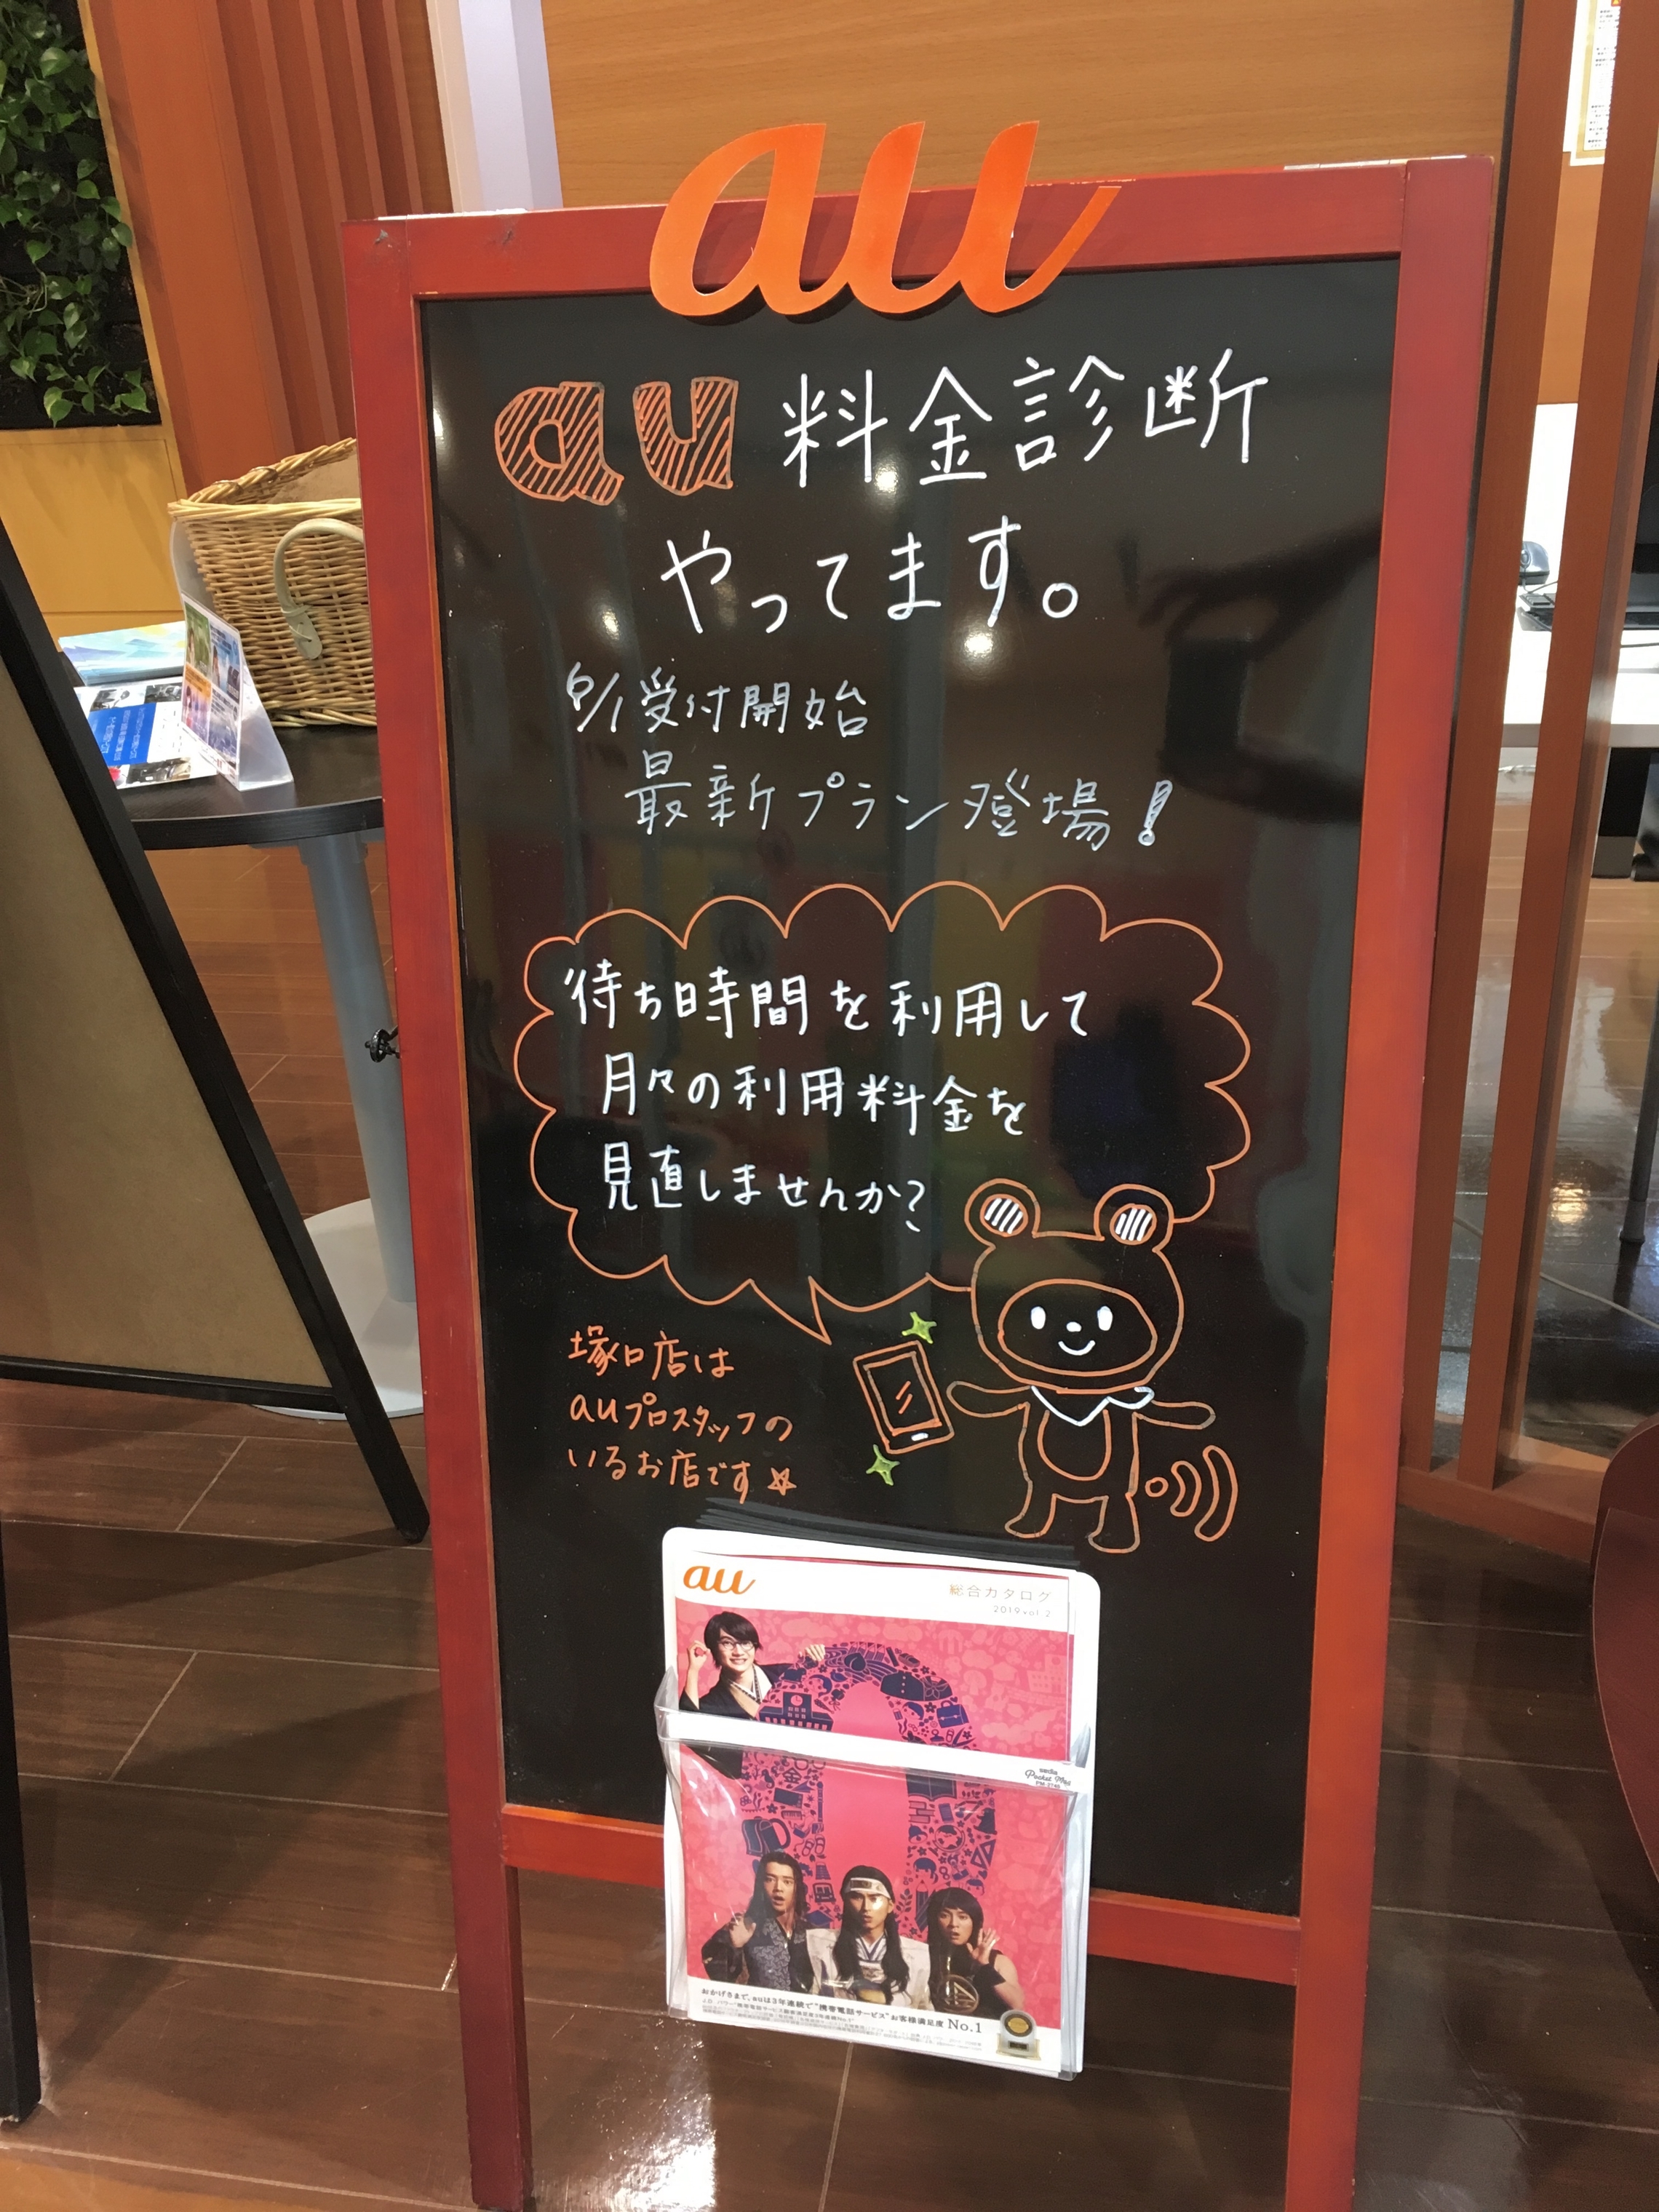 au
au 料金診断
やってます。
6/1受付開始
最新プラン登場!
待ち時間を利用して
月々の利用料金を
見直しませんか?
塚口店は
auプロスタッフの
いるお店です☆
au
総合カタログ
2019 vol.2
おかげさまで、auは3年連続で"携帯電話サービス"お客様満足度 No.1